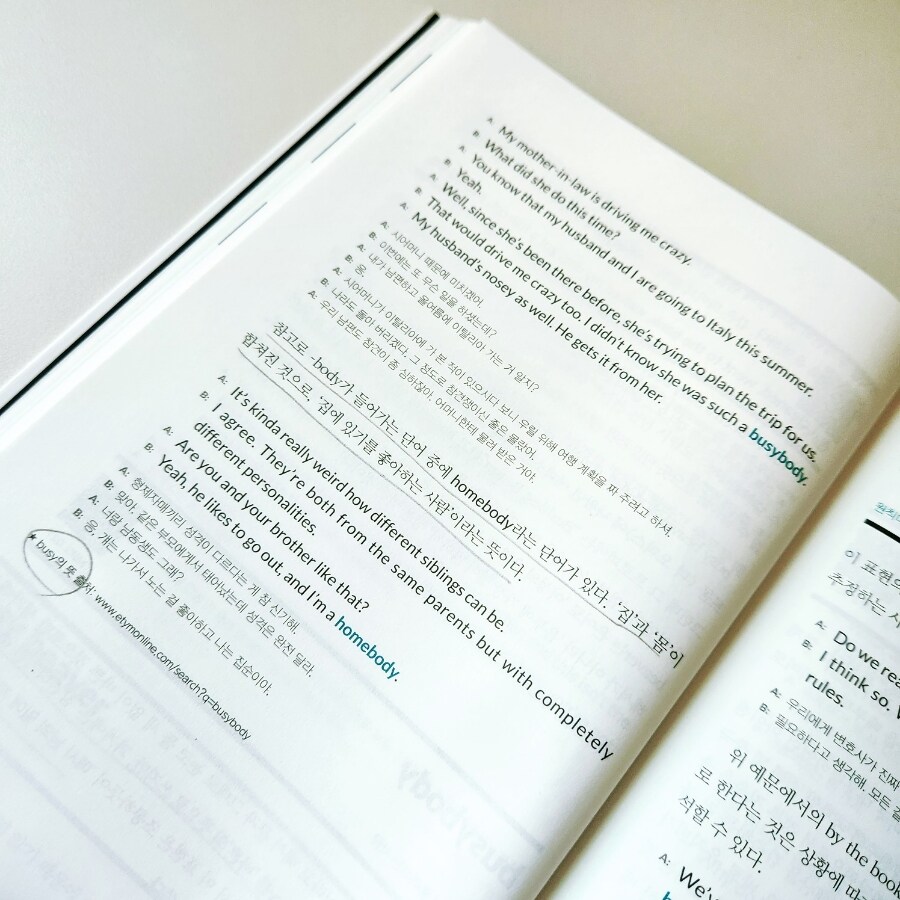 A: My mother-in-law is driving me crazy.
B: What did she do this time?
A: You know that my husband and I are going to Italy this summer.
B: Yeah.
A: Well, since she's been there before, she's trying to plan the trip for us.
B: That would drive me crazy too. I didn't know she was such a busybody.
A: My husband's nosey as well. He gets it from her.
A: 시어머니 때문에 미치겠어.
B: 이번에는 또 무슨 일을 하셨는데?
A: 내가 남편하고 올여름에 이탈리아 가는 거 알지?
B: 응.
A: 시어머니가 이탈리아에 가 본 적이 있으시다 보니 우릴 위해 여행 계획을 짜 주려고 하셔.
B: 나라도 돌아 버리겠다. 그 정도로 참견쟁이신 줄은 몰랐어.
A: 우리 남편도 참견이 좀 심하잖아. 어머니한테 물려 받은 거야.
참고로 -body가 들어가는 단어 중에 homebody라는 단어가 있다. '집'과 '몸'이
합쳐진 것으로, '집에 있기를 좋아하는 사람'이라는 뜻이다.
A: It's kinda really weird how different siblings can be.
B: I agree. They're both from the same parents but with completely
different personalities.
A: Are you and your brother like that?
B: Yeah, he likes to go out, and I'm a homebody.
A: 형제자매끼리 성격이 다르다는 게 참 신기해.
B: 맞아. 같은 부모에게서 태어났는데 성격은 완전 달라.
A: 너랑 남동생도 그래?
B: 응, 걔는 나가서 노는 걸 좋아하고 나는 집순이야.
* busy의 뜻 출처: www.etymonline.com/search?q=busybody
이 표현의
추정하는
A: Do we rea
B: I think so. W
rules.
A: 우리에게 변호사가 진짜
B: 필요하다고 생각해. 모든
위 예문에서의 by the book
로 한다는 것은 상황에 따
석할 수 있다.
A: We'v